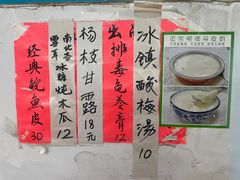 冰鎮酸梅湯 10
出排毒龟苓膏 12
杨枝甘露 18元
南北杏冰糖炖木瓜 12
雪耳
经典鲮鱼皮 30
正宗顺德双皮奶